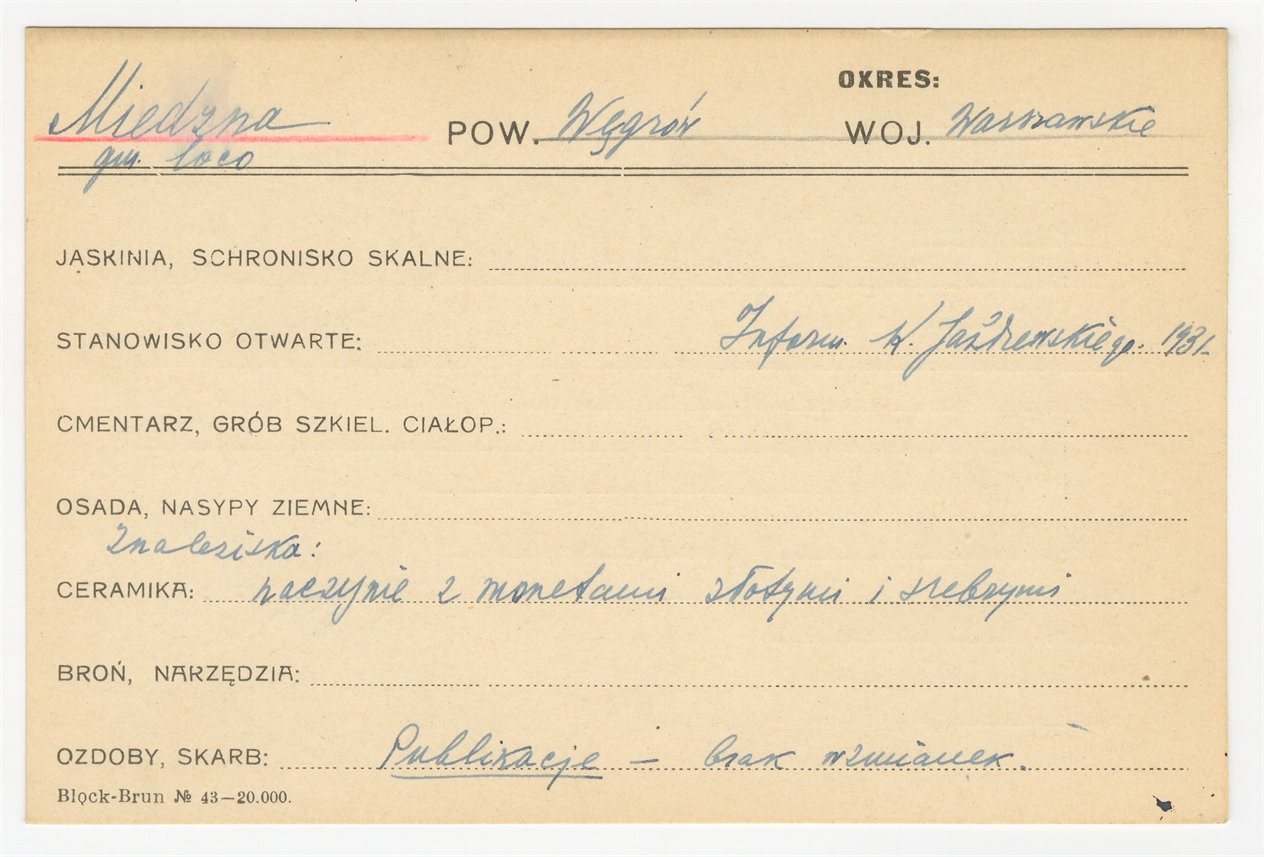 OKRES:
Miedzna POW. Węgrów WOJ. Warszawskie
gm. loco
JASKINIA, SCHRONISKO SKALNE:
STANOWISKO OTWARTE: Inform. K. Jażdżewskiego. 1931.
CMENTARZ, GRÓB SZKIEL. CIAŁOP.:
OSADA, NASYPY ZIEMNE:
Znaleziska:
CERAMIKA: naczynie z monetami złotymi i srebrnymi
BROŃ, NARZĘDZIA:
OZDOBY, SKARB: Publikacje – brak wzmianek.
Block-Brun № 43–20.000.